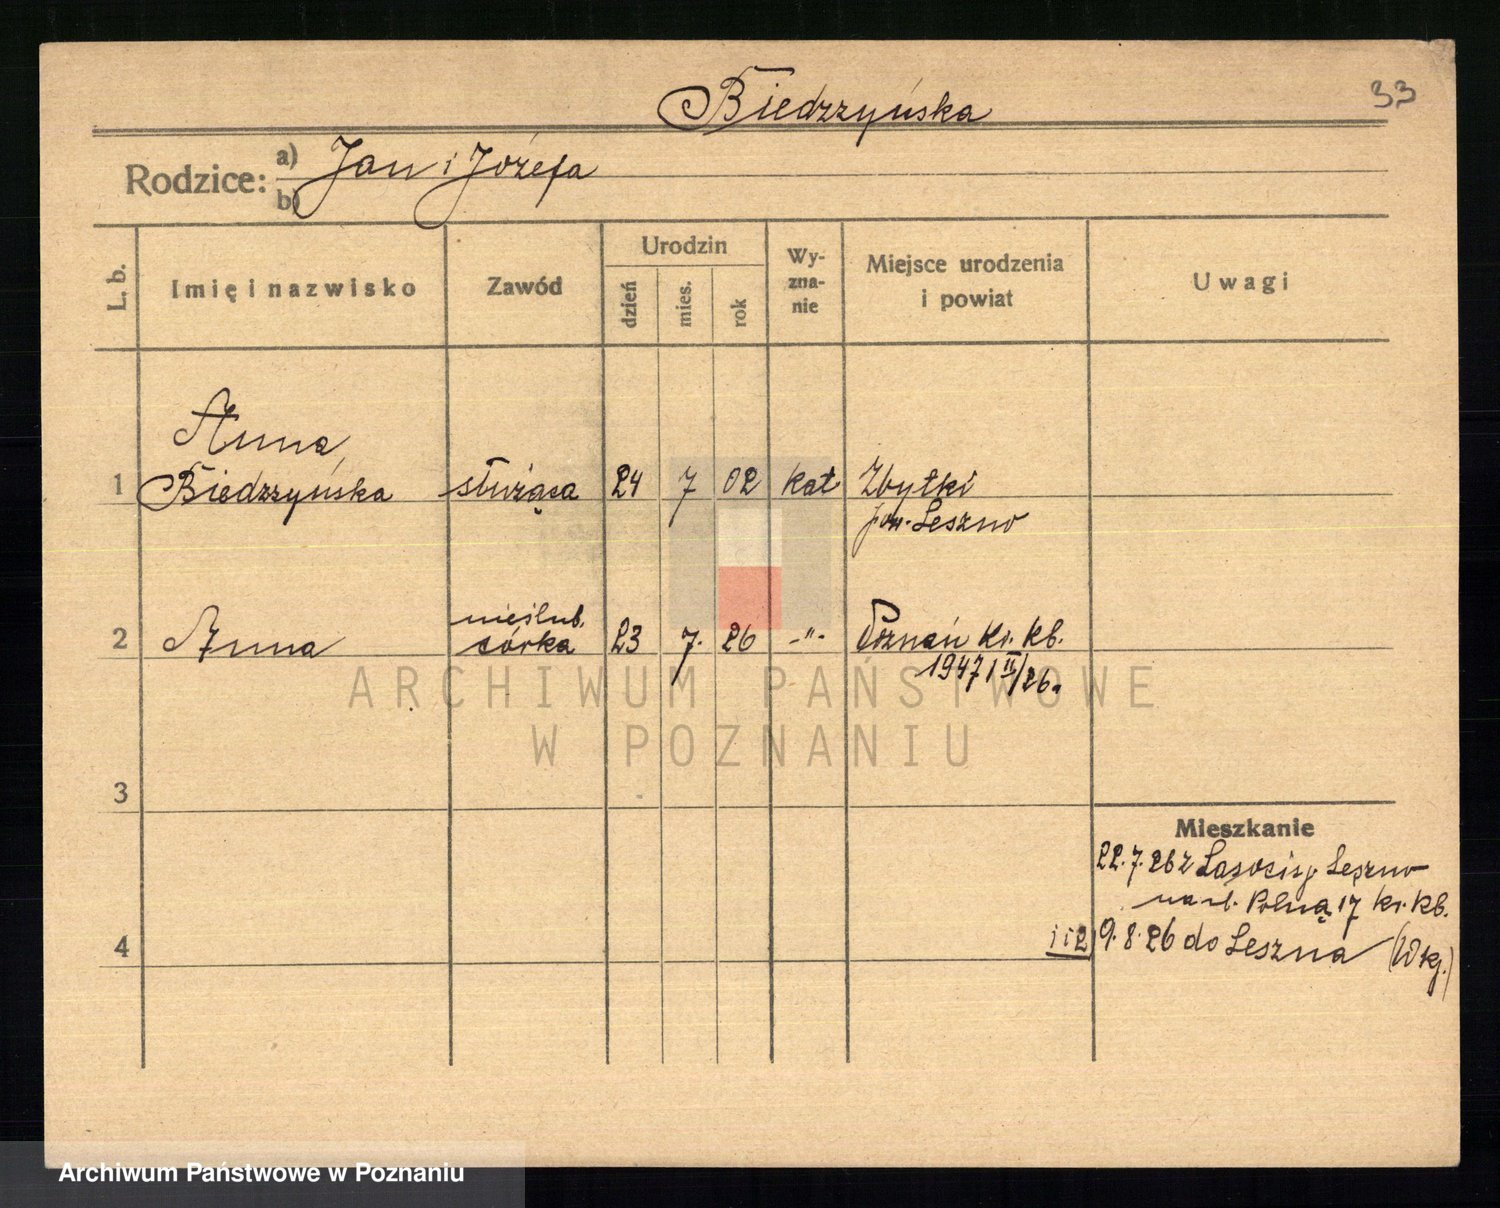 Biedrzyńska
33
Rodzice: a) Jan i Józefa
b)
L. b.
Imię i nazwisko
Zawód
Urodzin
dzień
mies.
rok
Wy-
zna-
nie
Miejsce urodzenia
i powiat
Uwagi
Anna
1 Biedrzyńska służąca 24 7 02 kat Zbytki
pow. Leszno
nieślub.
2 Anna córka 23 7. 26 -"- Poznań Kr. Kb.
1947/II/26.
3
Mieszkanie
22.7.26 z Lasocic p. Leszno
na ul. Polną 17 Kr. Kb.
4
1 i 2) 9.8.26 do Leszna (Wkj.)
ARCHIWUM PAŃSTWOWE
W POZNANIU
Archiwum Państwowe w Poznaniu